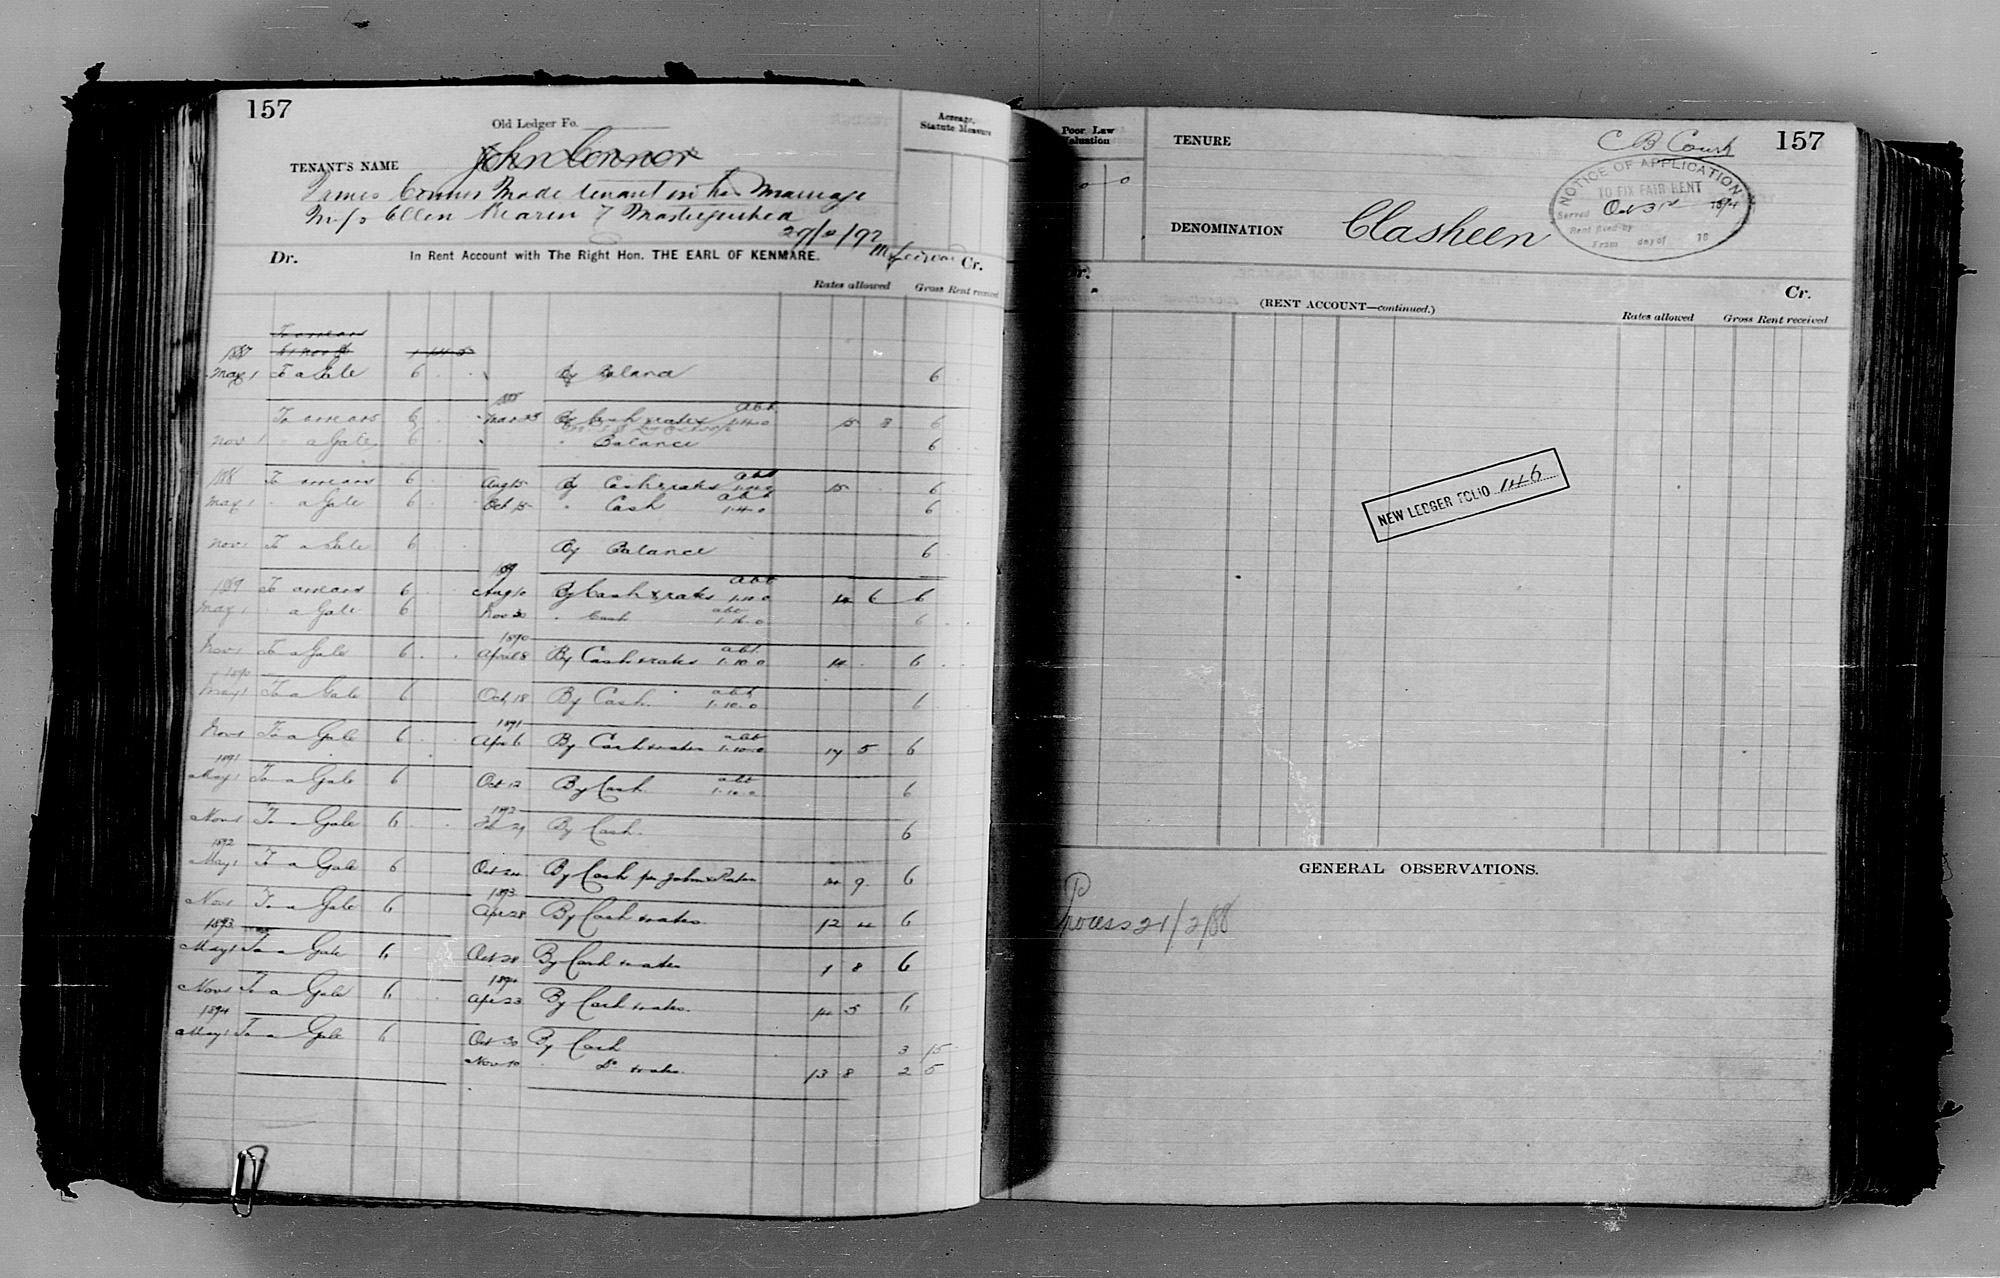 157
Old Ledger Fo.
TENANT'S NAME John Connor
James Connor Made tenant on his Marriage
Miss Ellen
29/2/92
Dr. In Rent Account with The Right Hon. THE EARL OF KENMARE. Cr.
Acreage, Statute Measure
Rates allowed Gross Rent received
To arrears
1887
May 1 To a Gale 6 By Balance 6
1888
To arrears 6 Mar 23 By Cash & rates abt 1.4.0 15 8 6
Nov 1 " a Gale 6 " Balance 6
1888 To arrears 6 Aug 15 By Cash & rates abt 15 6
May 1 " a Gale 6 Oct 15 " Cash abt 1.4.0 6
Nov 1 To a Gale 6 By Balance 6
1889
1889 To arrears 6 Aug 10 By Cash & rates abt 1.10.0 14 6 6
May 1 " a Gale 6 Nov 30 " Cash abt 6
1890
Nov 1 To a Gale 6 April 8 By Cash & rates abt 1.10.0 14 6
1890
May 1 To a Gale 6 Oct 18 By Cash abt 1.10.0 6
1891
Nov 1 To a Gale 6 Apr 6 By Cash & rates abt 1.10.0 17 5 6
1891
May 1 To a Gale 6 Oct 12 By Cash abt 1.10.0 6
1892
Nov 1 To a Gale 6 Feb 29 By Cash 6
1892
May 1 To a Gale 6 Oct 24 By Cash per John & Rates 14 9 6
1893
Nov 1 To a Gale 6 Apr 28 By Cash & rates 12 4 6
1893
May 1 To a Gale 6 Oct 28 By Cash & rates 1 8 6
1894
Nov 1 To a Gale 6 Apr 23 By Cash & rates 14 5 6
1894
May 1 To a Gale 6 Oct 30 By Cash 3 15
Nov 10 " Do & rates 13 8 2 5
Poor Law Valuation
TENURE
C B Court
157
NOTICE OF APPLICATION
TO FIX FAIR RENT
Served Oct 31st 1894
Rent fixed by
From day of 18
DENOMINATION Clasheen
(RENT ACCOUNT—continued.) Cr.
Rates allowed Gross Rent received
NEW LEDGER FOLIO 146
GENERAL OBSERVATIONS.
Process 21/2/88